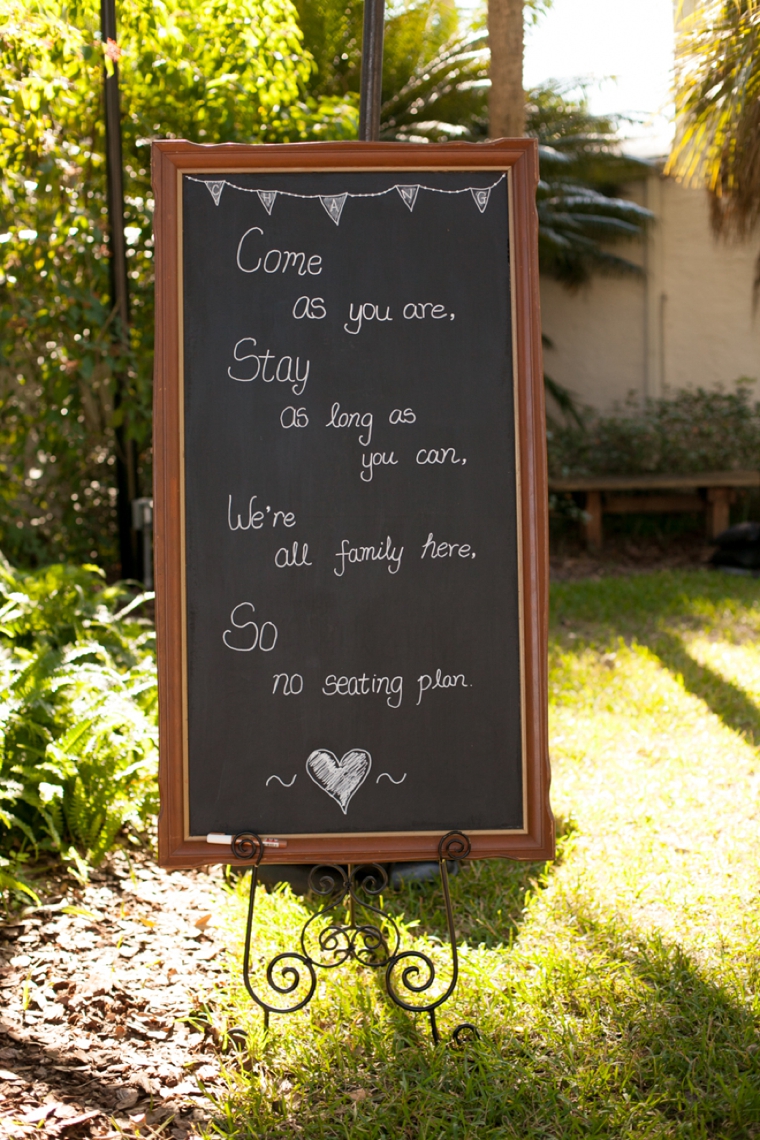 CHANG
Come
as you are,
Stay
as long as
you can,
We're
all family here,
So
no seating plan.